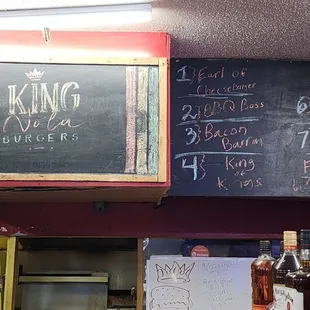 KING
Nola
BURGERS
1} Earl of
Cheeseburger
2} BBQ Boss
3} Bacon
Barran
4} King
of
Kings
6
7